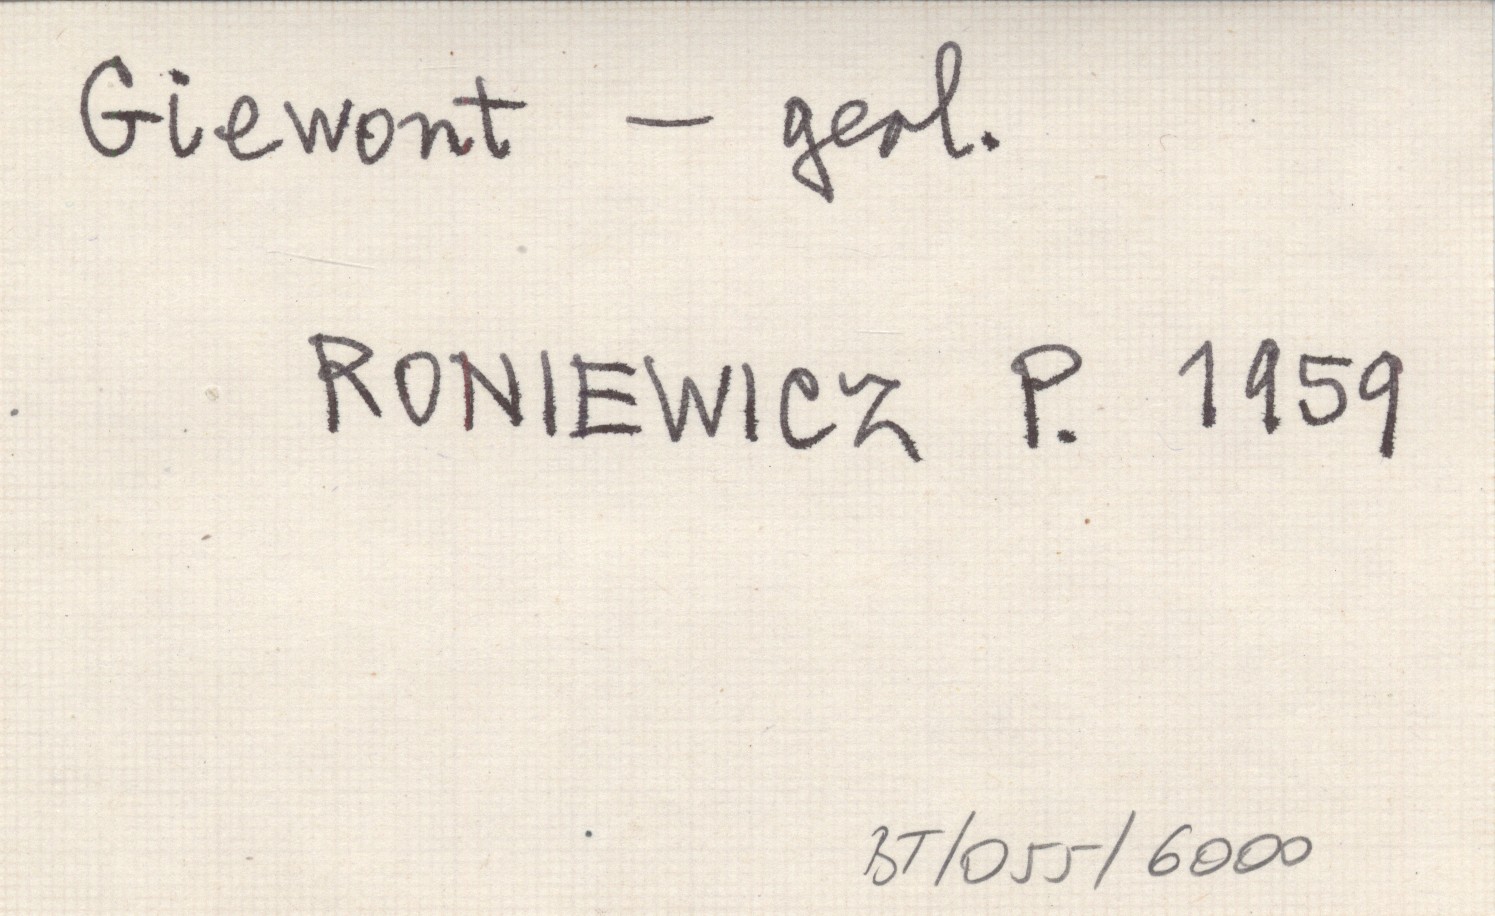 Giewont — geol.
RONIEWICZ P. 1959
BT/055/6000